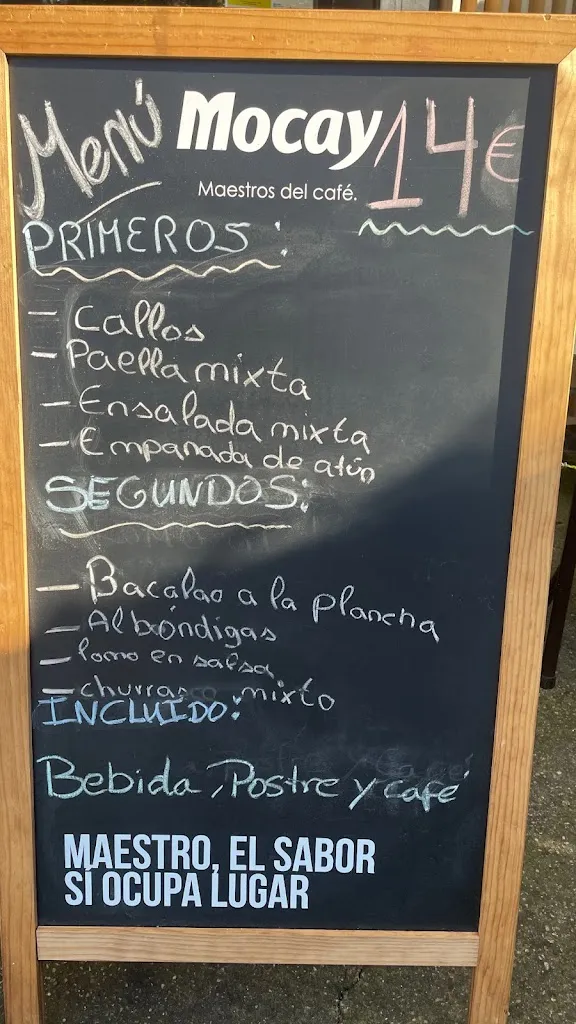 Menú Mocay 14€
Maestros del café.
PRIMEROS:
- Callos
- Paella mixta
- Ensalada mixta
- Empanada de atún
SEGUNDOS:
- Bacalao a la plancha
- Albóndigas
- lomo en salsa
- churrasco mixto
INCLUÍDO:
Bebida, Postre y café
MAESTRO, EL SABOR
SÍ OCUPA LUGAR